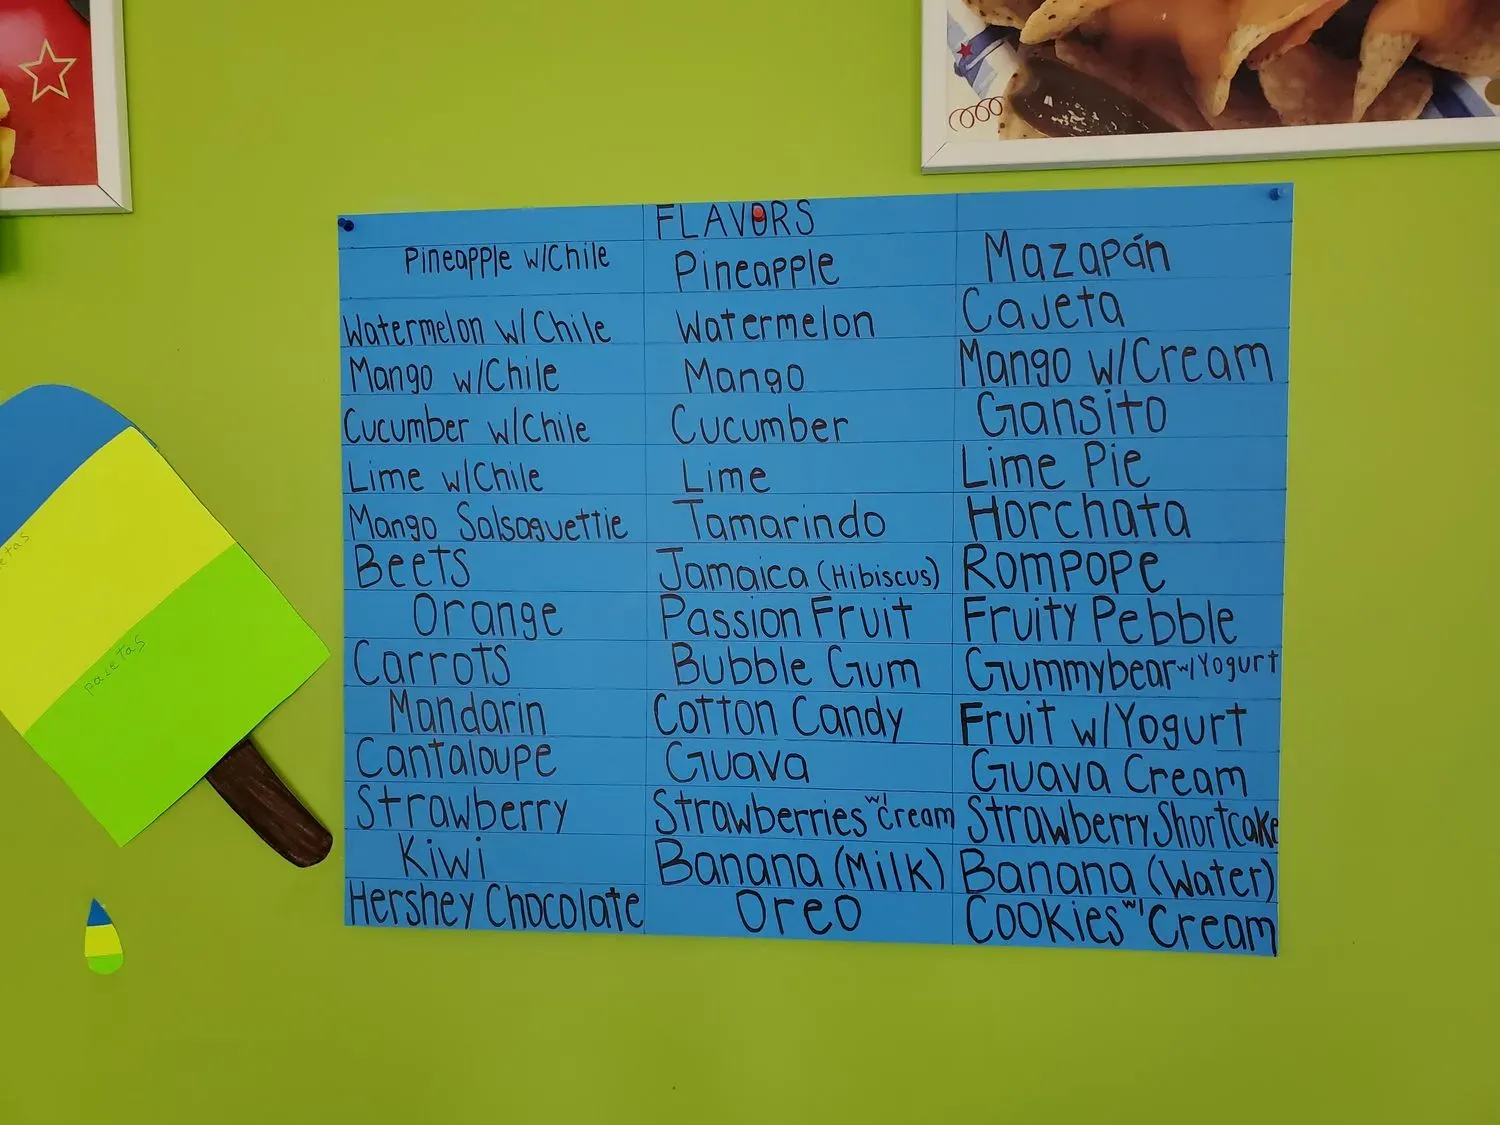 FLAVORS
Pineapple w/Chile
Watermelon w/Chile
Mango w/Chile
Cucumber w/Chile
Lime w/Chile
Mango Salsaguettie
Beets
Orange
Carrots
Mandarin
Cantaloupe
Strawberry
Kiwi
Hershey Chocolate
Pineapple
Watermelon
Mango
Cucumber
Lime
Tamarindo
Jamaica (Hibiscus)
Passion Fruit
Bubble Gum
Cotton Candy
Guava
Strawberries w/ Cream
Banana (Milk)
Oreo
Mazapán
Cajeta
Mango w/Cream
Gansito
Lime Pie
Horchata
Rompope
Fruity Pebble
Gummybear w/Yogurt
Fruit w/Yogurt
Guava Cream
Strawberry Shortcake
Banana (Water)
Cookies w/ Cream
paletas